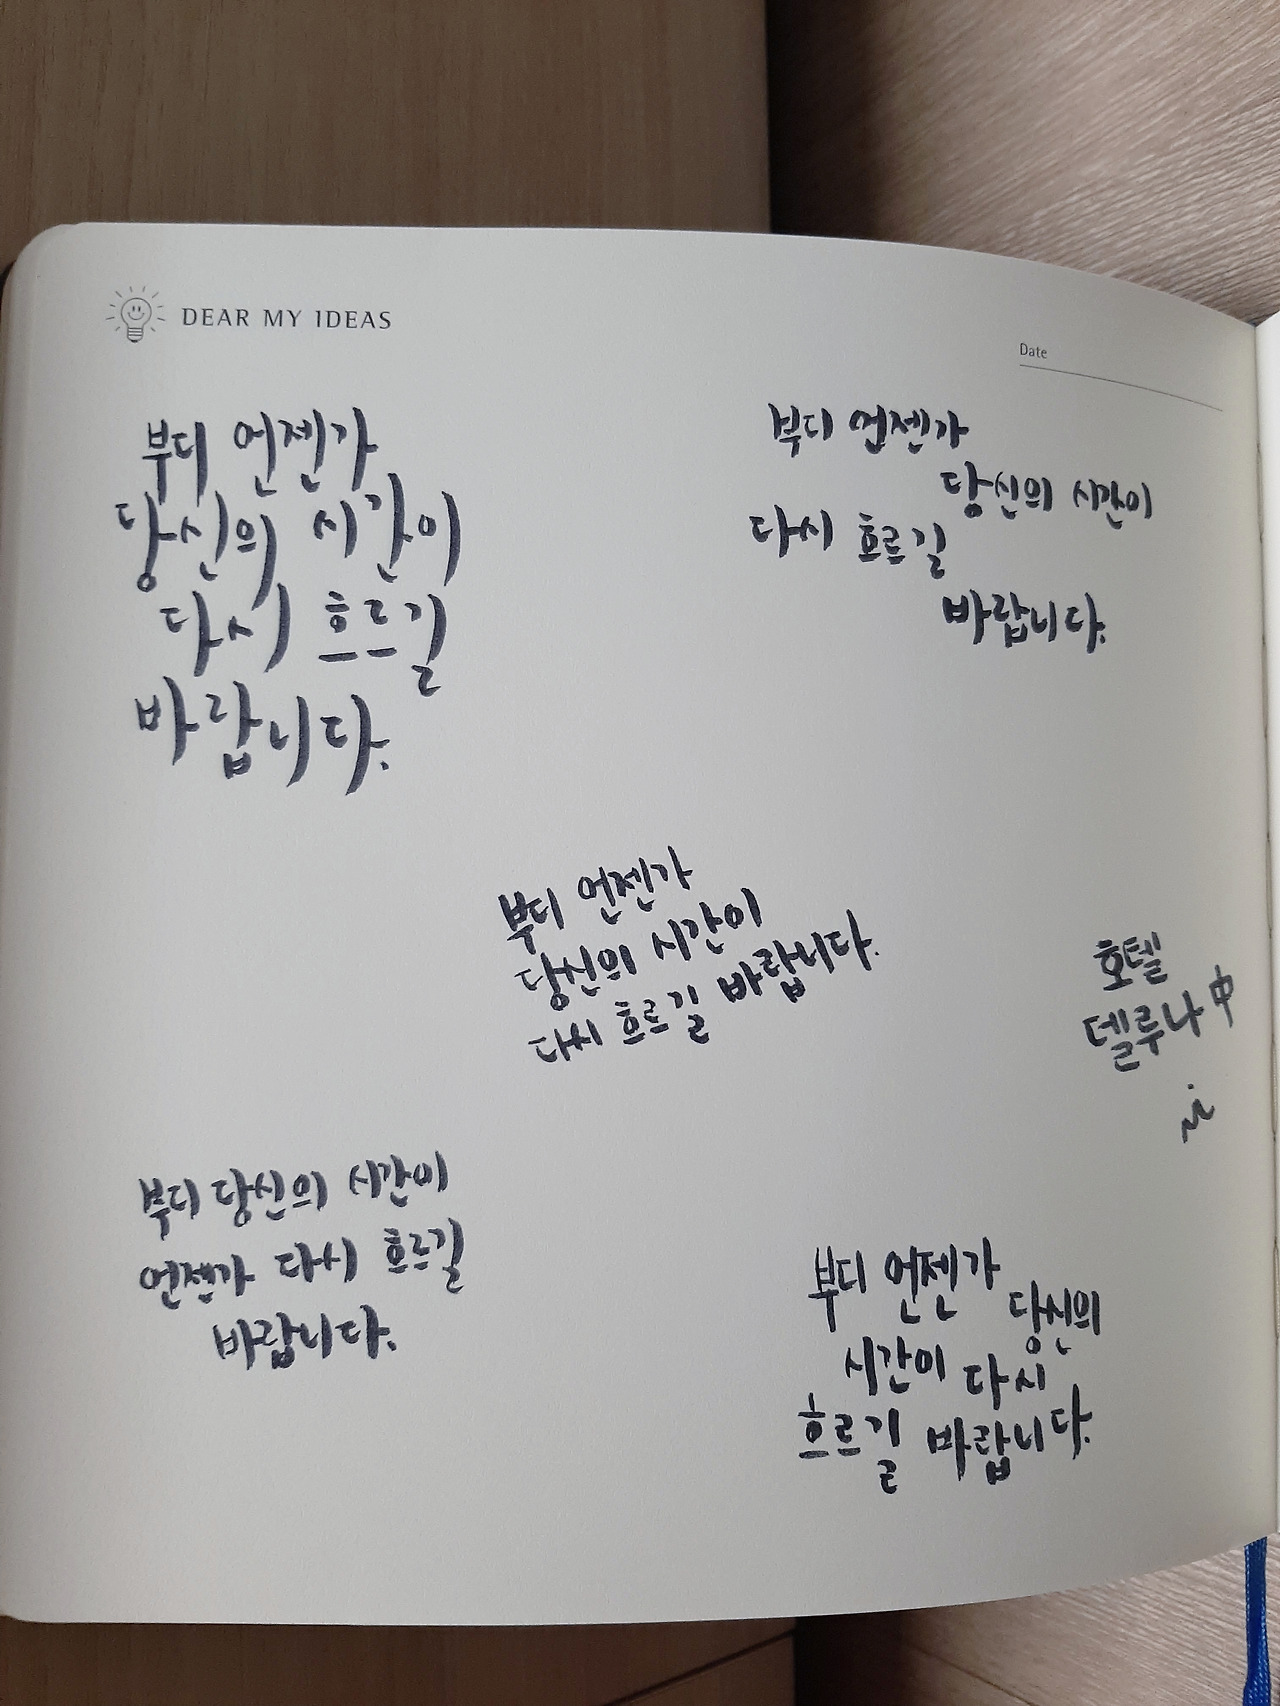 DEAR MY IDEAS
Date
부디 언젠가
당신의 시간이
다시 흐르길
바랍니다.
부디 언젠가
당신의 시간이
다시 흐르길
바랍니다.
부디 언젠가
당신의 시간이
다시 흐르길 바랍니다.
호텔
델루나 中
부디 당신의 시간이
언젠가 다시 흐르길
바랍니다.
부디 언젠가 당신의
시간이 다시
흐르길 바랍니다.